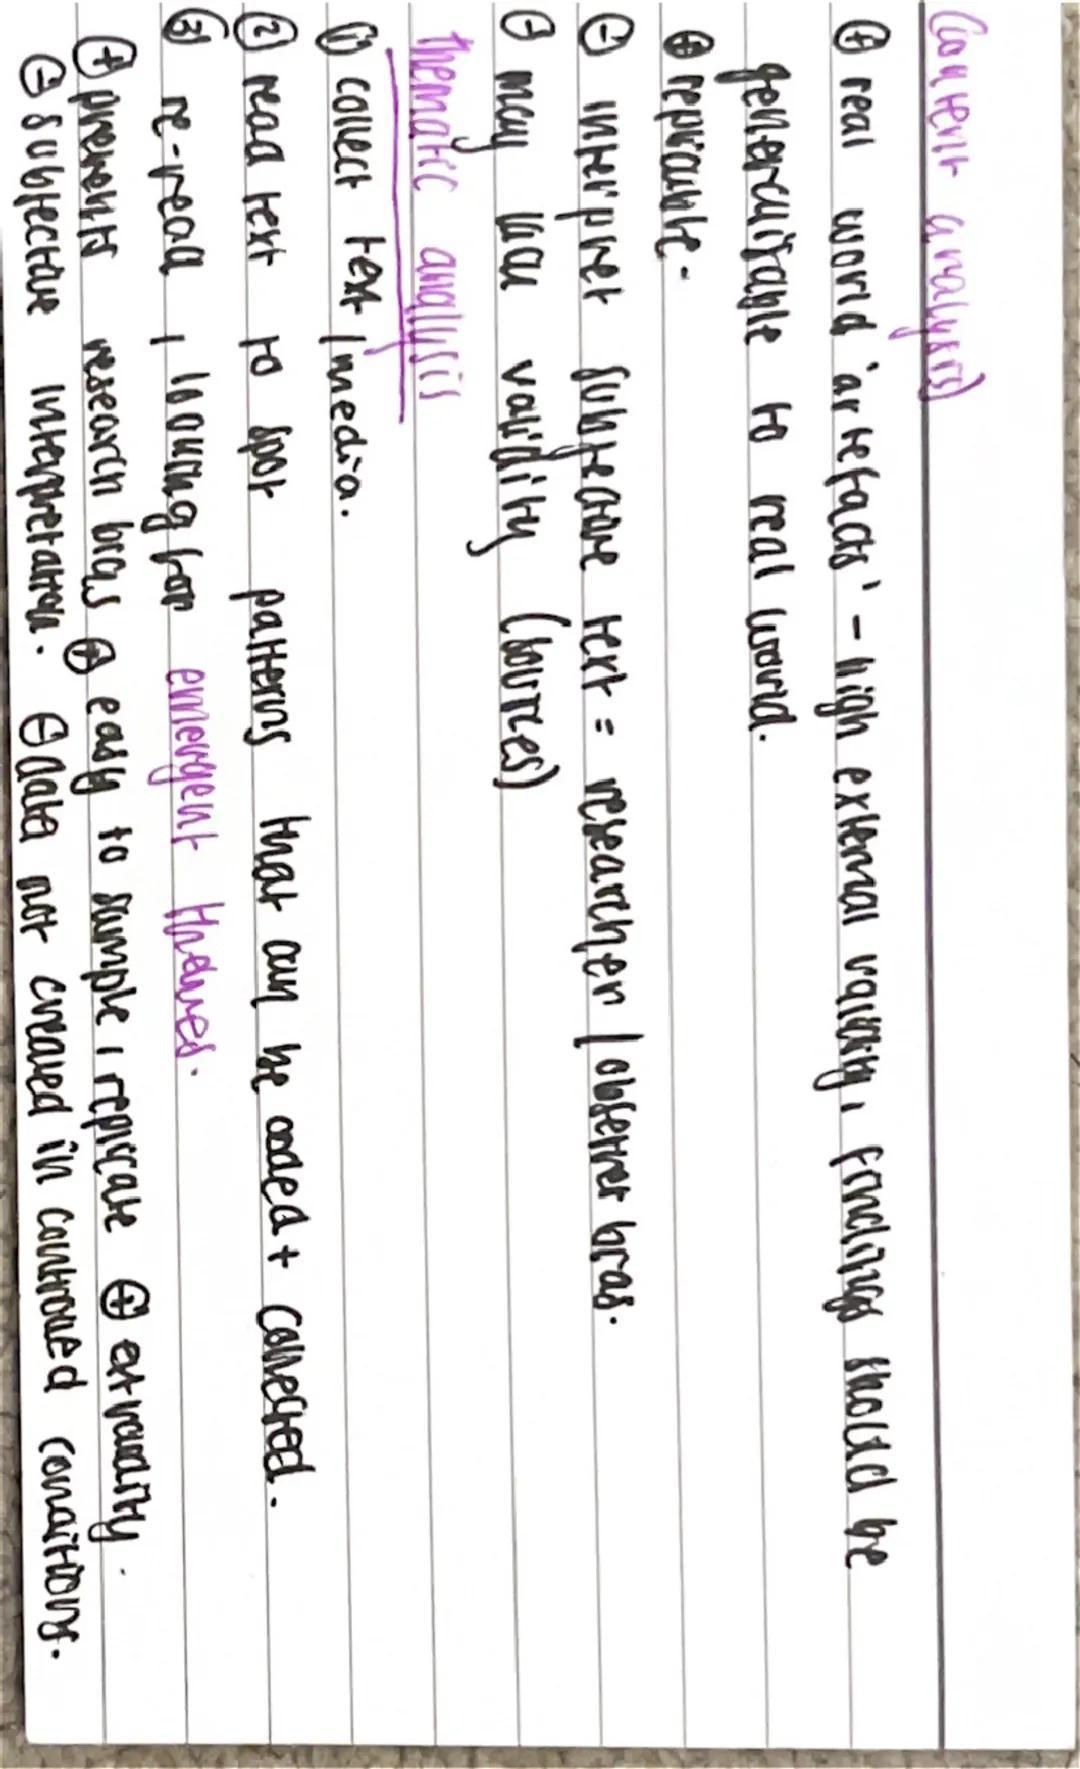 Content analysis
⊕ real world 'artefacts' - high external validity, findings should be
generalisable to real world.
⊕ replicable.
⊖ interpret subjective text = researcher / observer bias.
⊖ may lack validity (sources)
thematic analysis
① collect text / media.
② read text to spot patterns that can be coded + connected.
③ re-read, looking for emergent themes.
⊕ prevents research bias ⊕ easy to sample, replicate ⊕ ext validity.
⊖ subjective interpretation. ⊖ data not created in controlled conditions.